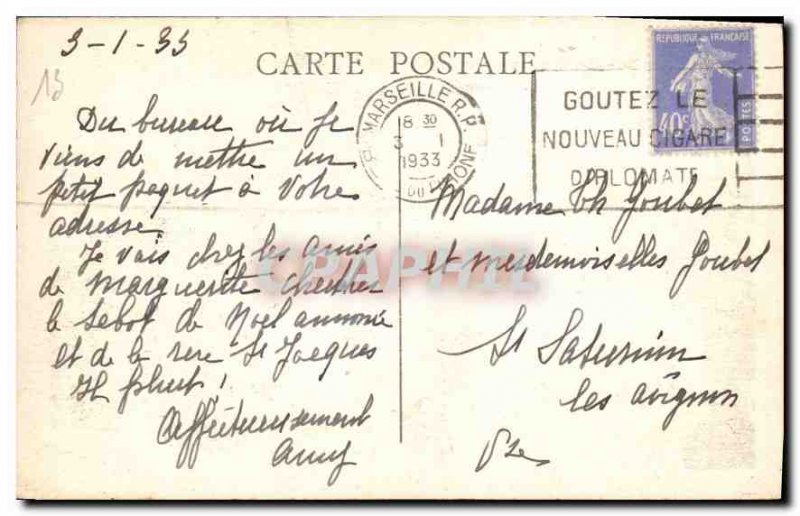 3-1-33
CARTE POSTALE
13
REPUBLIQUE FRANÇAISE
40c
POSTES
MARSEILLE R.P.
8 30
3 1
1933
DU RHONE
GOUTEZ LE
NOUVEAU CIGARE
DIPLOMATE
Du bureau où je
viens de mettre un
petit paquet à Votre
adresse.
Je vais chez les amies
de Marguerite chercher
le sabot de Noël annoncé
et de la rue St Jacques
Il pleut !
Affectueusement
Madame Th Goubet
et mesdemoiselles Goubet
St Saturnin
les avignon
Vse
CPAPHIL